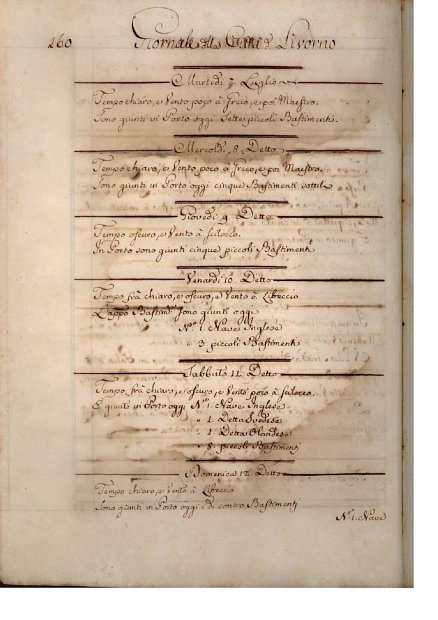 160 Giornale della Città di Livorno
Martedì 7 Luglio
Tempo chiaro, e Vento poco à Greco, e poi Maestro.
Sono giunti in Porto oggi Sette piccoli Bastimenti.
Mercoldì 8. Detto
Tempo chiaro, e Vento poco à Greco, e poi Maestro.
Sono giunti in Porto oggi cinque Bastimenti sottili
Giovedì 9. Detto
Tempo oscuro, e Vento à Scilocco.
In Porto sono giunti cinque piccoli Bastimenti
Venardì 10. Detto
Tempo frà chiaro, e oscuro, e Vento à Libeccio
L'appo Bastimti Sono giunti oggi
No. 1. Nave Inglese
3. piccoli Bastimenti
Sabbato 11. Detto
Tempo frà chiaro, e oscuro, e Vento poco à Scilocco.
È giunto in Porto oggi No. 1. Nave Inglese
" 1. Detta Svedese
" 1. Detta Olandese
" 8. piccoli Bastimenti
Domenica 12. Detto
Tempo chiaro, e Vento à Libeccio
Sono giunti in Porto oggi i di contro Bastimenti
No. 1. Nave